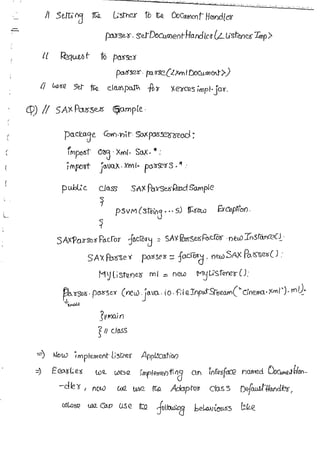 // Setting the Listner to the Document Handler
parser. setDocumentHandler(<ListenerImp>
// Request to parser
parser. parse(<XmlDocument>)
// were set the classpath for xerces impl. jar.
Q) // SAX Parser Sample
package com.nit. Saxparserread;
import org. Xml. Sax. *;
import javax. xml. parsers. *;
public class SAXParserReadSample
{
psvm (String... s) throws Exception.
{
SAXParserFactor factory = SAXParserFactor. newInstance();
SAXParser parser = factory. newSAXParser();
MyListener ml = new MyListener();
Parser. parser (new java. io. FileInputStream("cinema.xml"), ml);
}main
} // class
=) Now implement listner Application
=) Earlier we were implementing an interface named DocumentHan-
-dler, now we use the Adapter class DefaultHandler,
where we can use the following behaviours like